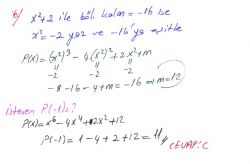 6) x²+2 ile böl. kalan = -16 ise
x² = -2 yaz ve -16'ya eşitle
P(x) = (x²)³ - 4(x²)² + 2x² + m
-2 -2 -2
-8 -16 -4 + m = -16 ⇒ m = 12
istenen P(-1) = ?
P(x) = x⁶ - 4x⁴ + 2x² + 12
P(-1) = 1 - 4 + 2 + 12 = 11 CEVAP: C